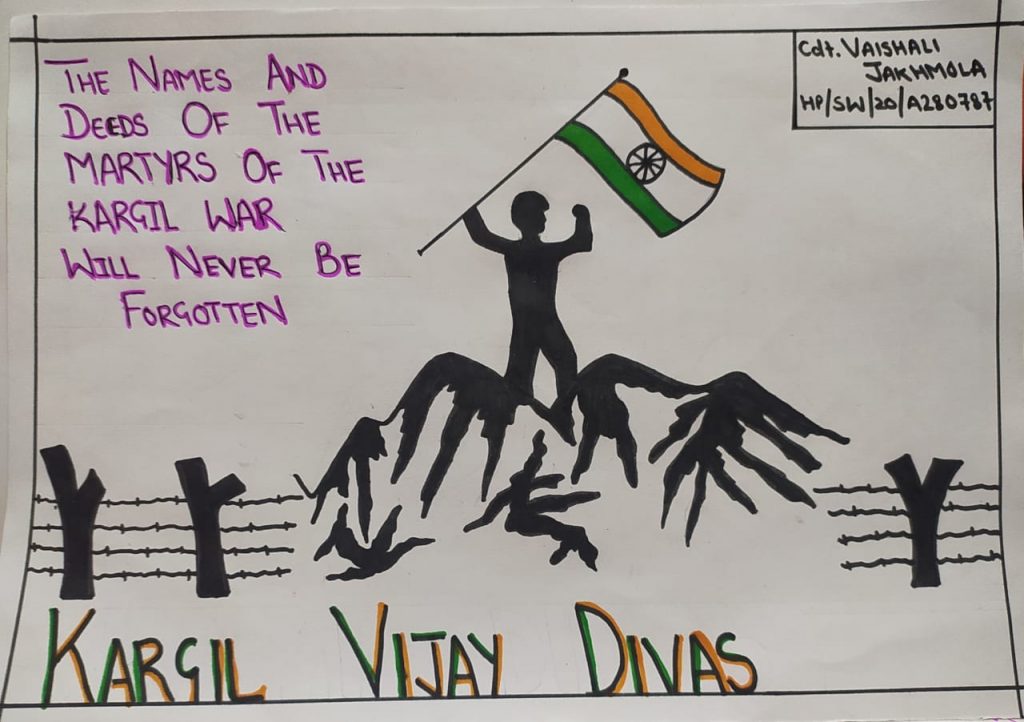 THE NAMES AND
DEEDS OF THE
MARTYRS OF THE
KARGIL WAR
WILL NEVER BE
FORGOTTEN
Cdt. VAISHALI
JAKHMOLA
HP/SW/20/A280787
KARGIL VIJAY DIVAS